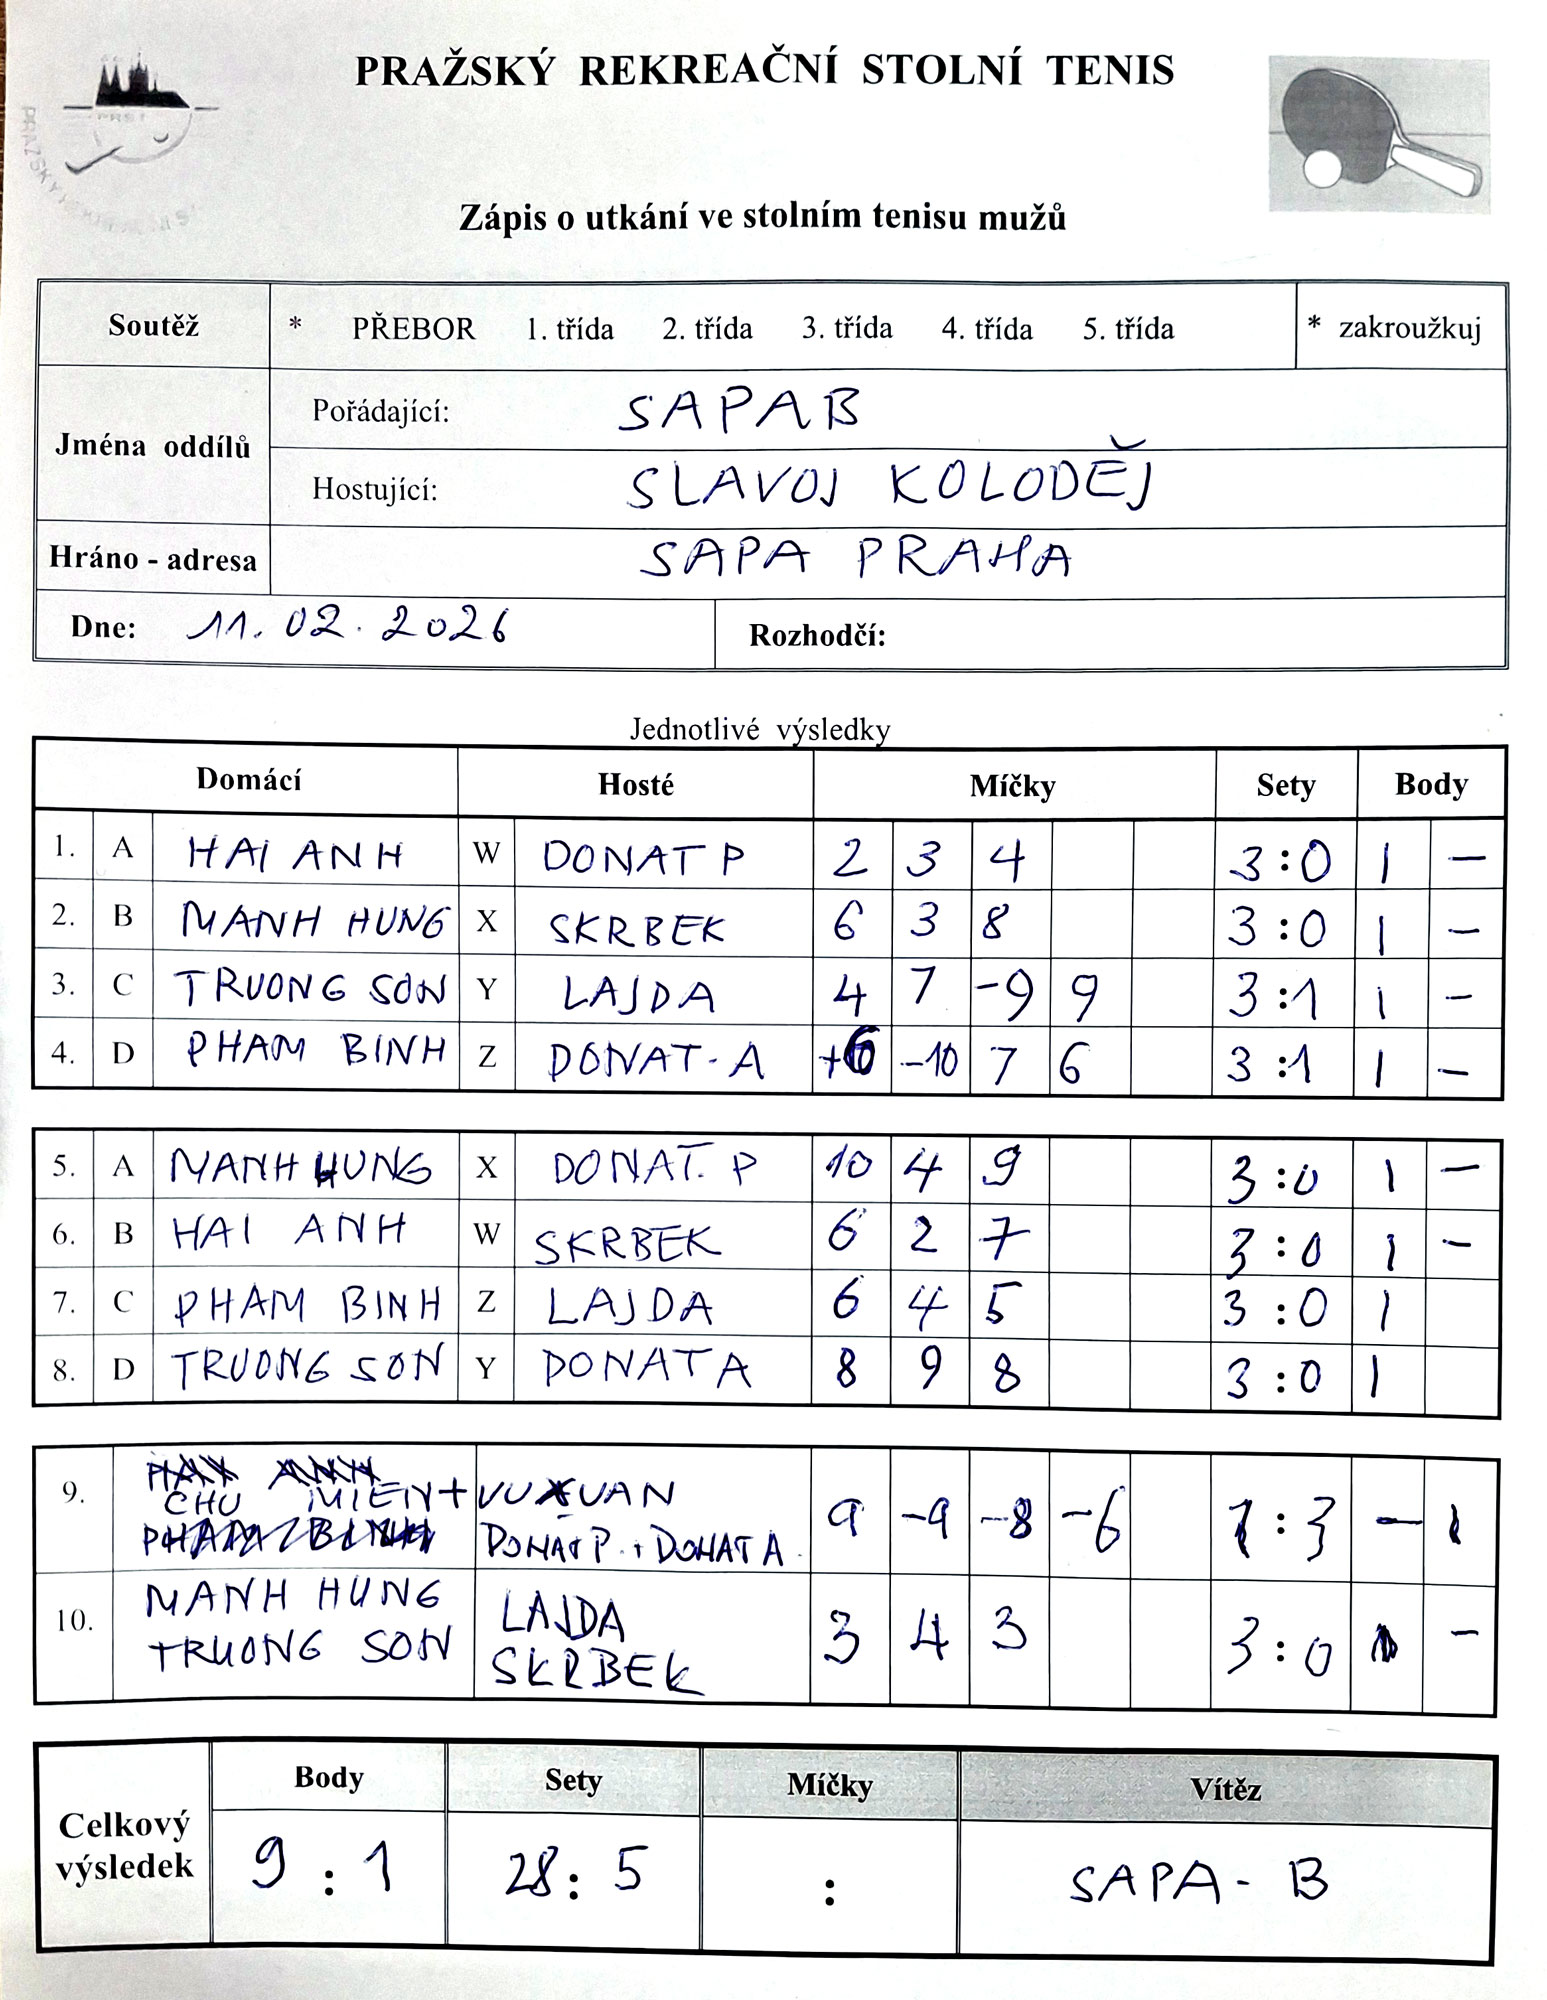 PRAŽSKÝ REKREAČNÍ STOLNÍ TENIS
PRST
Zápis o utkání ve stolním tenisu mužů
Soutěž * PŘEBOR 1. třída 2. třída 3. třída 4. třída 5. třída * zakroužkuj
Jména oddílů
Pořádající: SAPA B
Hostující: SLAVOJ KOLODĚJ
Hráno - adresa SAPA PRAHA
Dne: 11.02.2026 Rozhodčí:
Jednotlivé výsledky
Domácí Hosté Míčky Sety Body
1. A HAI ANH W DONAT P 2 3 4 3:0 1 –
2. B MANH HUNG X SKRBEK 6 3 8 3:0 1 –
3. C TRUONG SON Y LAJDA 4 7 -9 9 3:1 1 –
4. D PHAM BINH Z DONAT-A +6 -10 7 6 3:1 1 –
5. A MANH HUNG X DONAT. P 10 4 9 3:0 1 –
6. B HAI ANH W SKRBEK 6 2 7 3:0 1 –
7. C PHAM BINH Z LAJDA 6 4 5 3:0 1
8. D TRUONG SON Y DONAT A 8 9 8 3:0 1
HAI ANH
9. CHU MIEN + VU XUAN 9 -9 -8 -6 1:3 – 1
PHAM BINH DONAT P. + DONAT A.
MANH HUNG LAJDA
10. 3 4 3 3:0 1 –
TRUONG SON SKRBEK
Body Sety Míčky Vítěz
Celkový výsledek 9:1 28:5 : SAPA-B